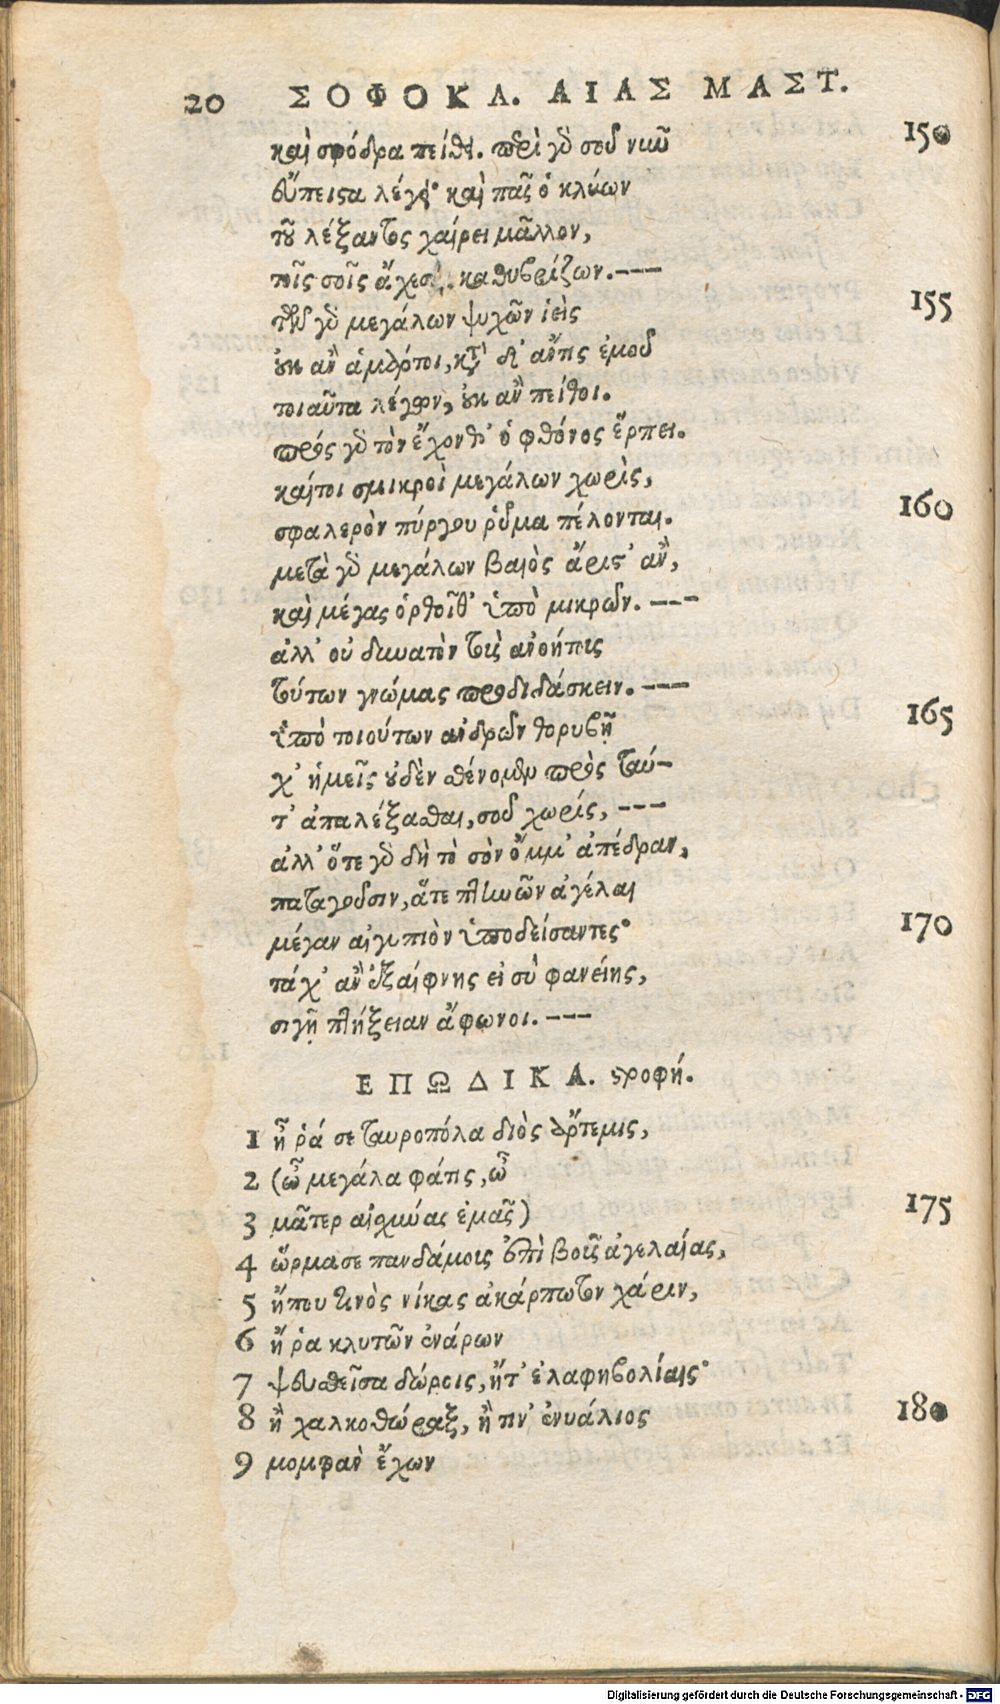 20 ΣΟΦΟΚΛ. ΑΙΑΣ ΜΑΣΤ.
καὶ σφόδρα πείθει. περὶ γὰρ σοῦ νιῶ 150
εὔπειστα λέγει· καὶ πᾶς ὁ κλύων
τοῦ λέξαντος χαίρει μᾶλλον,
τοῖς σοῖς ἄχεσι, καθυβρίζων.---
τῶν γὰρ μεγάλων ψυχῶν ἱεὶς 155
οὐκ ἂν ἁμάρτοι, κτ' δ' αὖτις ἐμοῦ
τοιαῦτα λέγων, οὐκ ἂν πείθοι.
πρός γὰρ τὸν ἔχονθ' ὁ φθόνος ἕρπει.
καίτοι σμικροὶ μεγάλων χωρὶς,
σφαλερὸν πύργου ῥῦμα πέλονται. 160
μετὰ γὰρ μεγάλων βαιὸς ἄριστ' ἂν,
καὶ μέγας ὀρθοῖθ' ὑπὸ μικρῶν. ---
ἀλλ' οὐ δυνατὸν τοὺς ἀνοήτοις
τούτων γνώμας προδιδάσκειν.---
ὑπὸ τοιούτων ἀνδρῶν θορυβῇ 165
χ' ἡμεῖς οὐδὲν σθένομεν πρὸς ταύ-
τ' ἀπαλέξασθαι, σοῦ χωρίς, ---
ἀλλ' ὅτε γὰρ δὴ τὸ σὸν ὄμμ' ἀπέδραν,
παταγοῦσιν, ἅτε πτηνῶν ἀγέλαι
μέγαν αἰγυπιὸν ὑποδείσαντες· 170
τάχ' ἂν ἐξαίφνης εἰ σὺ φανείης,
σιγῇ πτήξειαν ἄφωνοι.---
ΕΠΩΔΙΚΑ. στροφή.
1 ἦ ῥά σε ταυροπόλα διὸς ἄρτεμις,
2 (ὦ μεγάλα φάτις, ὦ
3 μᾶτερ αἰσχύνας ἐμᾶς) 175
4 ὥρμασε πανδάμοις ἐπὶ βοῦς ἀγελαίας,
5 ἤπου τινὸς νίκας ἀκάρπωτον χάριν,
6 ἤ ῥα κλυτῶν ἐνάρων
7 ψευσθεῖσα δώροις, ἤτ' ἐλαφηβολίαις·
8 ἢ χαλκοθώραξ, ἢ τιν' ἐνυάλιος 180
9 μομφὰν ἔχων
Digitalisierung gefördert durch die Deutsche Forschungsgemeinschaft - DFG